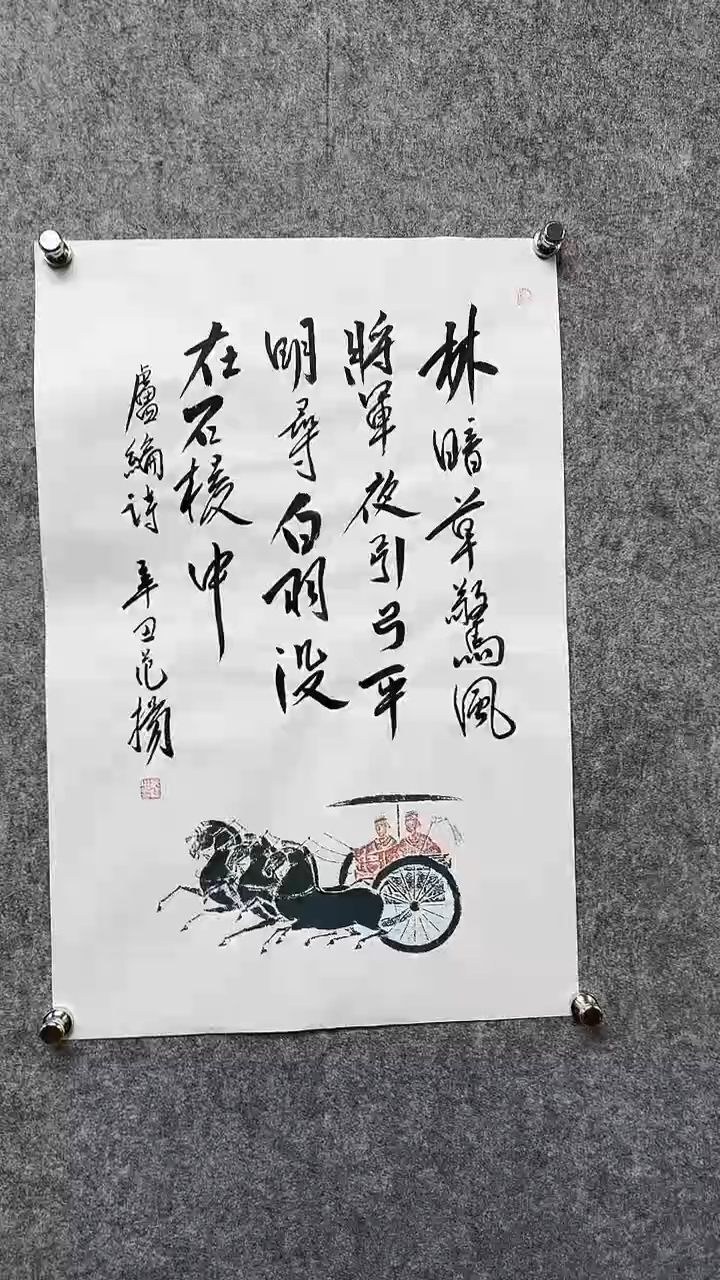 林暗草驚風
將軍夜引弓平
明尋白羽没
在石棱中
盧綸诗 辛丑范揚